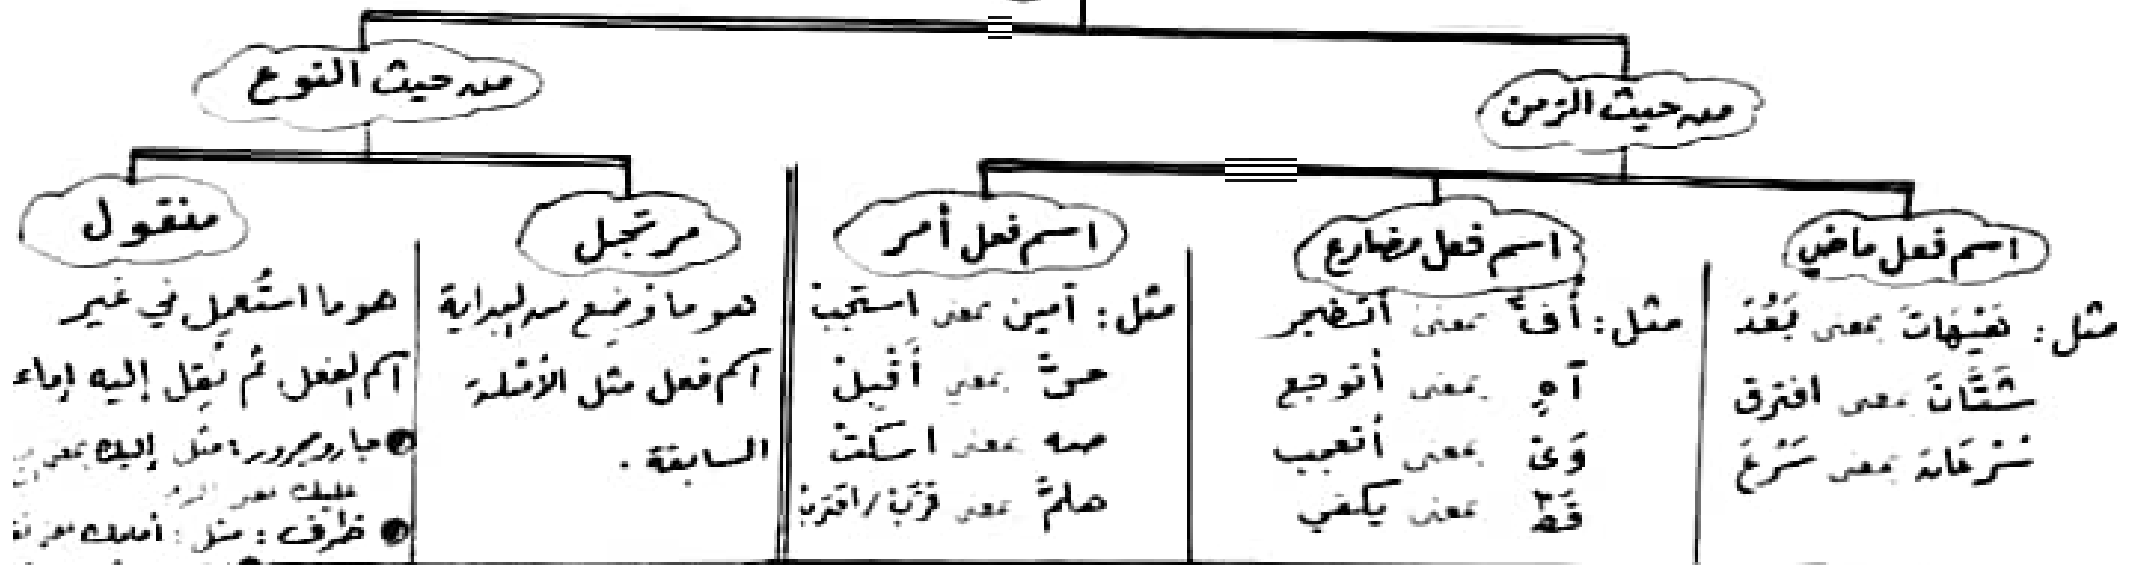 من حيث الزمن
من حيث النوع
اسم فعل ماضي
مثل: هَيْهَاتَ بمعنى بَعُدَ
شَتَّانَ بمعنى افترق
سَرْعَانَ بمعنى سَرُعَ
اسم فعل مضارع
مثل: أُفٍّ بمعنى أتضجر
آهٍ بمعنى أتوجع
وَيْ بمعنى أتعجب
قَطْ بمعنى يكفي
اسم فعل أمر
مثل: آمين بمعنى استجبْ
حيَّ بمعنى أَقْبِلْ
صه بمعنى اسكتْ
هلمَّ بمعنى قرِّبْ / اقتربْ
مرتجل
هو ما وُضِع من البداية
اسم فعل مثل الأمثلة
السابقة .
منقول
هو ما استُعمِل في غير
اسم الفعل ثم نُقِل إليه إما
جار ومجرور: مثل إليك بمعنى
عليك بمعنى
ظرف: مثل: أمامك بمعنى